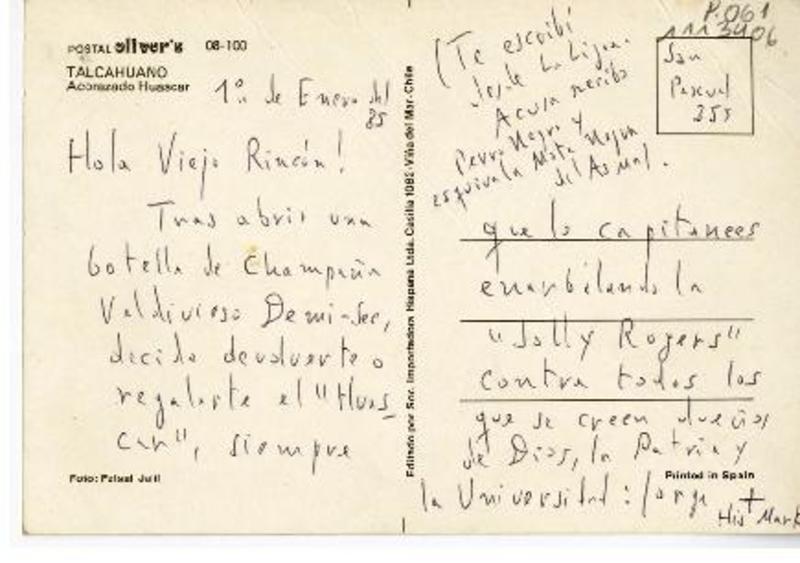 POSTAL Oliver's 08-100
TALCAHUANO
Acorazado Huascar
1º de Enero del
85
Hola Viejo Rincón!
Tras abrir una
botella de Champaña
Valdivieso Demi-Sec,
decido devolverte o
regalarte el "Huas
car", siempre
Foto: Faisal Julil
Editado por Soc. Importadora Hispana Ltda. Casilla 1082 - Viña del Mar - Chile
P.061
113406
(Te escribí
desde La Ligua.
Acusa recibo
Perro Negro y
esquiva la Mota Negra
San
Pascual
355
que lo capitanees
enarbolando la
"Jolly Rogers"
contra todos los
que se creen dueños
de Dios, la Patria y
Printed in Spain
la Universidad: Jorge +
His Mark